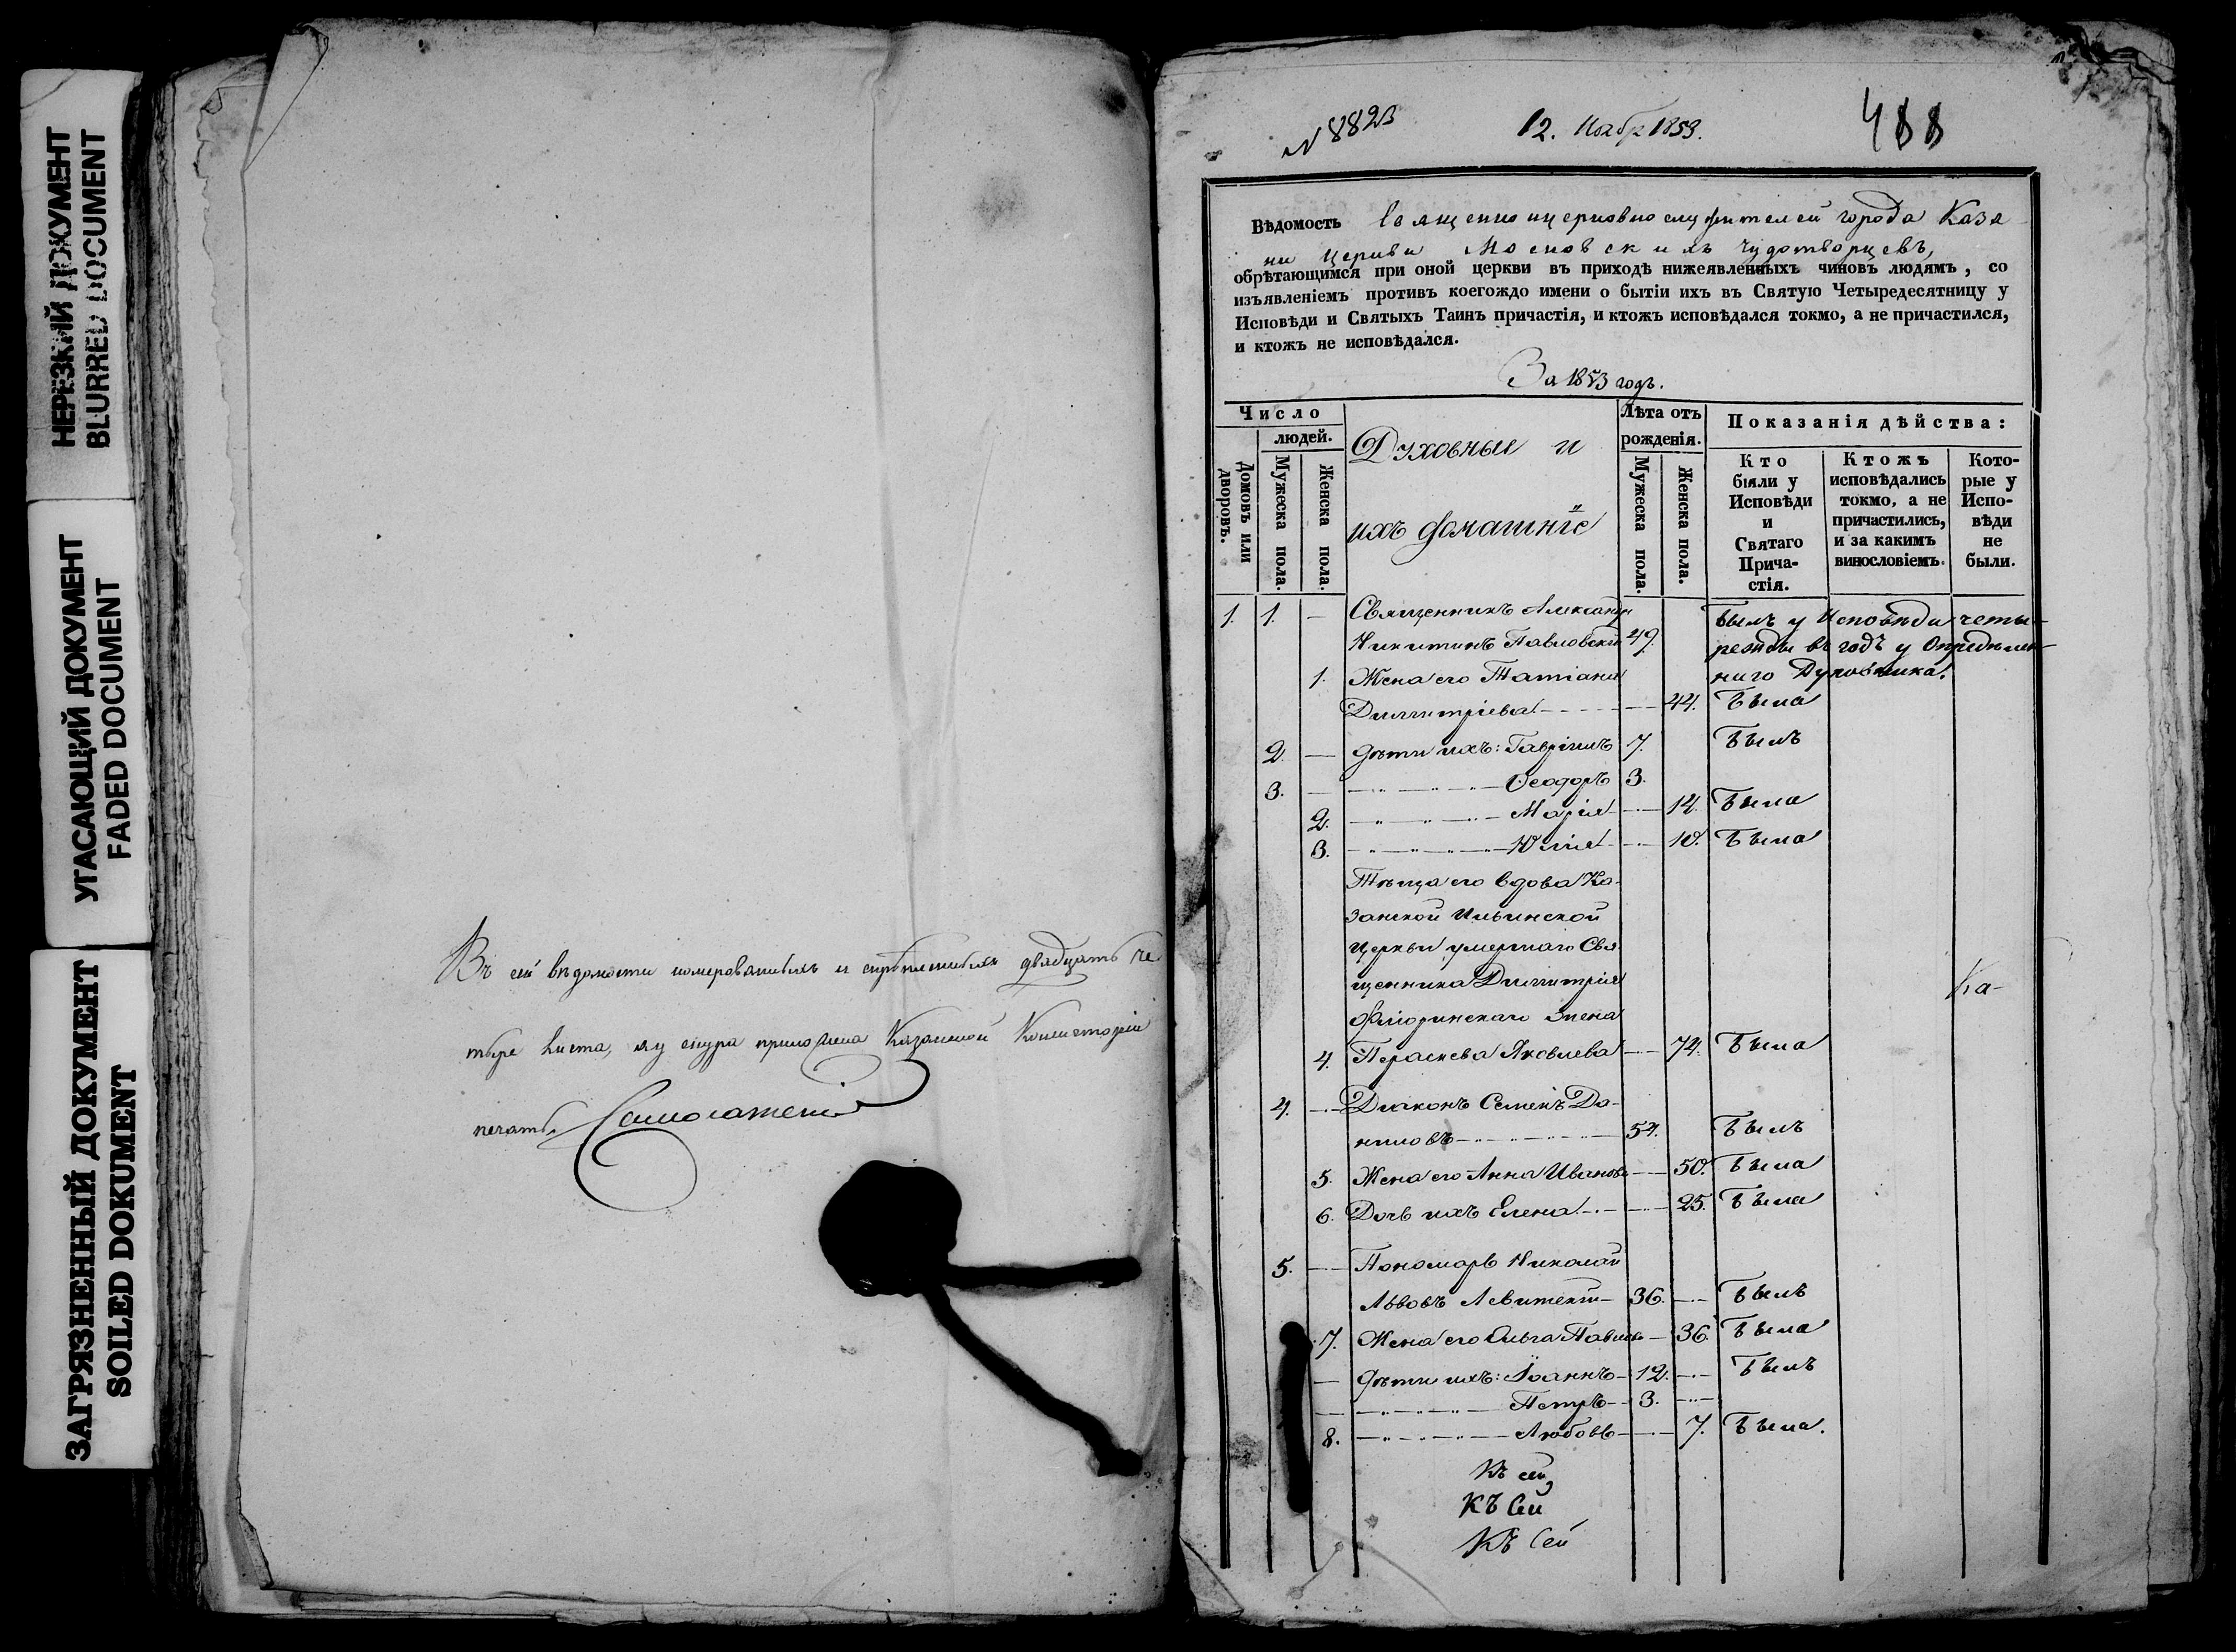 НЕРЕЗКИЙ ДОКУМЕНТ
BLURRED DOCUMENT
УГАСАЮЩИЙ ДОКУМЕНТ
FADED DOCUMENT
ЗАГРЯЗНЕННЫЙ ДОКУМЕНТ
SOILED DOKUMENT
Въ сей вѣдомости двадцать че
тыре листа, къ шнура приложена Казанской Консисторіи
печать.
N 8823
12. Ноябр 1853.
488
Вѣдомость Священно и церковно служителей города Каза
ни церкви Московскихъ Чудотворцевъ,
обрѣтающимся при оной церкви въ приходѣ нижеявленныхъ чиновъ людямъ, со
изъявленіемъ противъ коегождо имени о бытіи ихъ въ Святую Четыредесятницу у
Исповѣди и Святыхъ Таинъ причастія, и ктожъ исповѣдался токмо, а не причастился,
и ктожъ не исповѣдался.
За 1853 годъ.
Число
людей.
Домовъ или дворовъ.
Мужеска пола.
Женска пола.
Духовные и
ихъ домашніе
Лѣта отъ
рожденія.
Мужеска пола.
Женска пола.
Показанія дѣйства:
Кто
были у
Исповѣди
и
Святаго
Прича-
стія.
Ктожъ
исповѣдались
токмо, а не
причастились,
и за какимъ
винословіемъ.
Кото-
рые у
Испо-
вѣди
не
были.
1. 1. — Священникъ Александр Былъ у Исповѣди четы-
Никитинъ Павловскій 49. режды въ годъ у Опредѣлен-
1. Жена его Татіана наго Духовника.
Димитріева 44. Была
2. — Дѣти ихъ: Гавріилъ 7. Былъ
3. — Ѳеодоръ 3.
2. Марія 14. Была
3. Юлія 10. Была
Тѣща его вдова Ка-
занской Ильинской
Церкви умершаго Свя-
щенника Димитрія
Флоринскаго жена
Ка-
4. Параскева Яковлева 74. Была
4. Діаконъ Семенъ Да-
ниловъ 54. Былъ
5. Жена его Анна Иванова 50. Была
6. Дочь ихъ Елена 25. Была
5. Пономарь Николай
Львовъ 36. Былъ
7. Жена его Ольга Павлова 36. Была
— Дѣти ихъ: Іоаннъ 12. Былъ
— Петръ 3.
8. Любовь 7. Была.
Къ сей
Къ Сей
Къ Сей